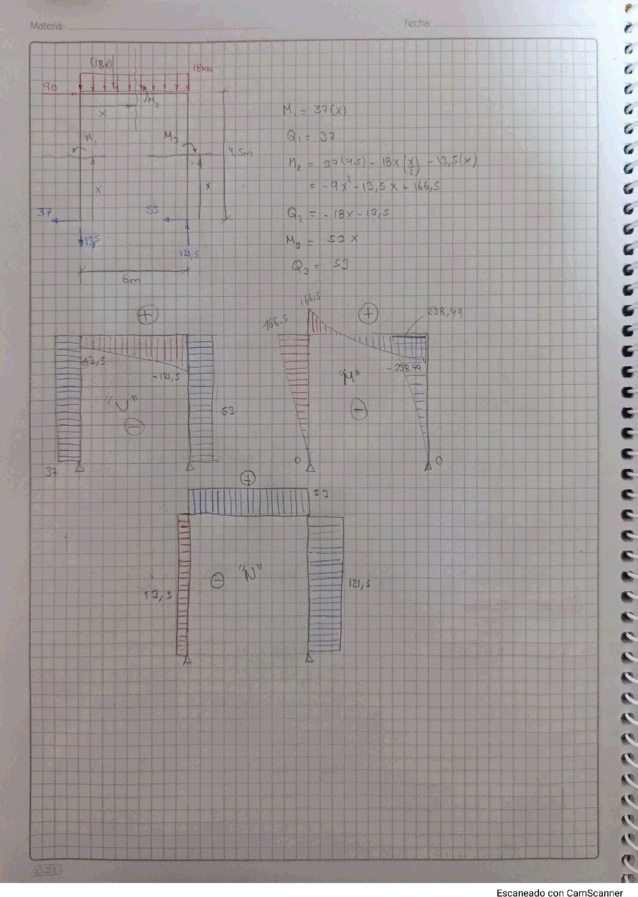 Materia:
Fecha:
(18x)
18KN
90
M₂
x
M₁
M₃
4,5m
x
x
37
53
13,5
121,5
6m
M₁ = 37(x)
Q₁ = 37
M₂ = 37(4,5) - 18x(x/2) - 13,5(x)
= -9x² - 13,5x + 166,5
Q₂ = -18x - 13,5
M₃ = 53x
Q₃ = 53
+
-13,5
-121,5
"V"
-
53
37
166,5
166,5
+
238,49
"M"
-
-238,49
0
0
+
53
- "N"
13,5
121,5
Escaneado con CamScanner